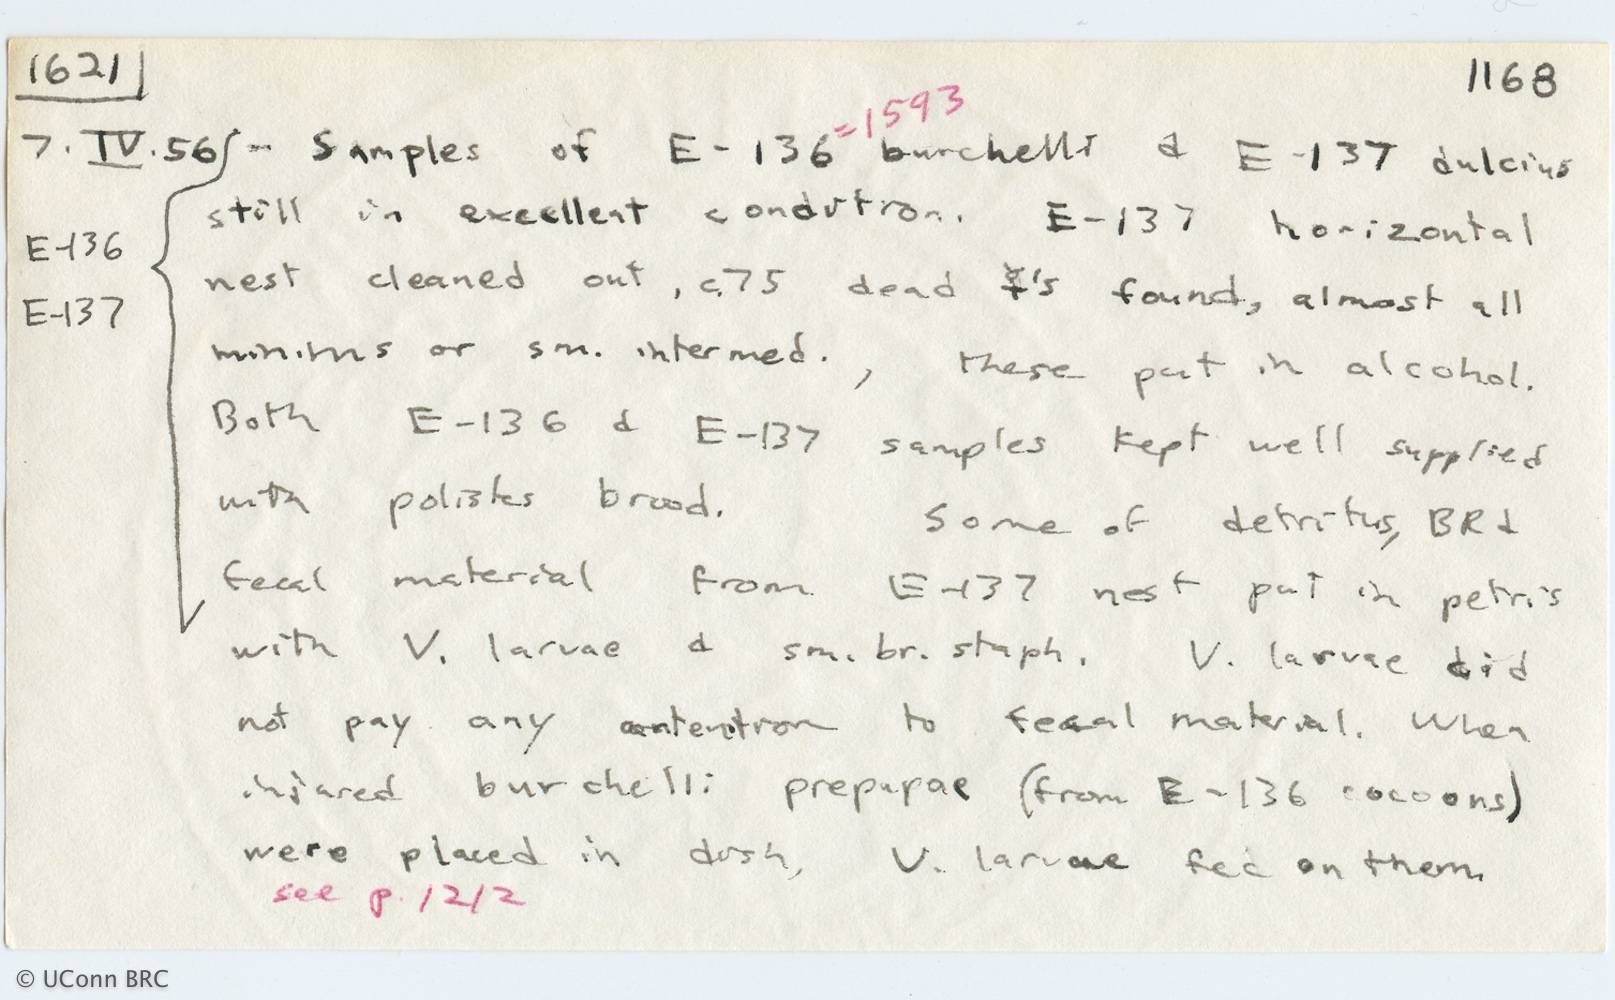 1621 1168
=1593
7.IV.56 - Samples of E-136 burchelli & E-137 dulcius
still in excellent condition. E-137 horizontal
E-136
nest cleaned out, c.75 dead ☿'s found, almost all
E-137
minims or sm. intermed., these put in alcohol.
Both E-136 & E-137 samples kept well supplied
with polistes brood. Some of detritus, BR &
fecal material from E-137 nest put in petris
with V. larvae & sm. br. staph. V. larvae did
not pay any antention to fecal material. When
injured burchelli prepupae (from E-136 cocoons)
were placed in dish, V. larvae fed on them.
see p. 1212
© UConn BRC